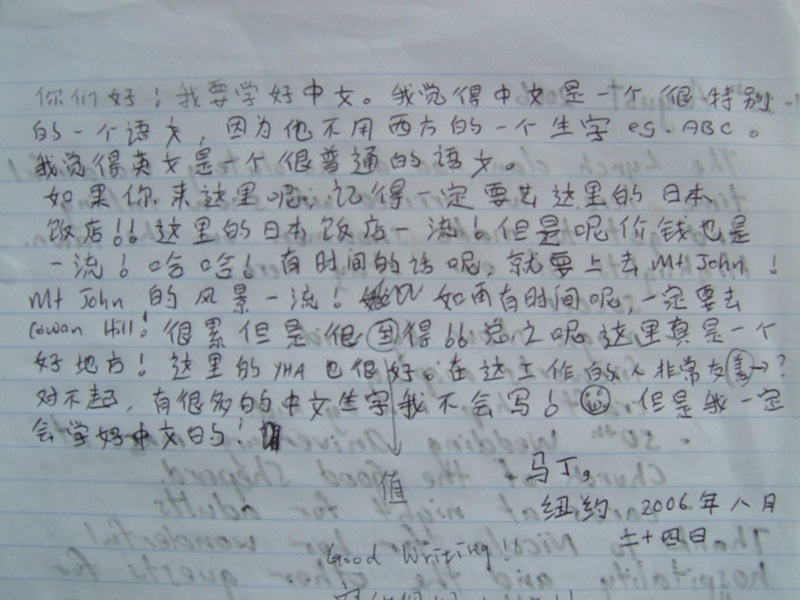 你们好！我要学好中文。我觉得中文是一个很特别
的一个语文，因为他不用西方的一个生字 eg. ABC。
我觉得英文是一个很普通的语文。
如果你来这里呢，记得一定要去这里的日本
饭店！！这里的日本饭店一流！但是呢价钱也是
一流！哈哈！有时间的话呢，就要上去 Mt John！
Mt John 的风景一流！如再有时间呢，一定要去
Cowan Hill！很累但是很得！！总之呢这里真是一个
好地方！这里的 YHA 也很好。在这工作的人非常友善→？
对不起，有很多的中文生字我不会写！但是我一定
会学好中文的！
值
马丁。
纽约 2006年八月
二十四日
Good Writing!!